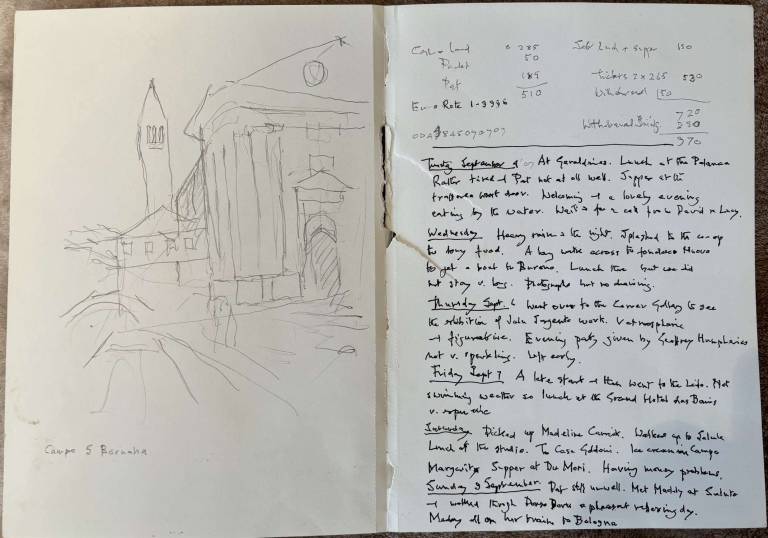 Campo S Barnaba
Cash - Lunch 285
50
Pat 185
510
Euro Rate 1-3996
Job Lunch + supper 150
tickets 2 x 265 530
Withdrawal 150
720
Withdrawal 250
970
September At Geraldine's. Lunch at the Palanca
Rather tired & Pat not at all well. Supper at the
trattoria next door. Welcoming & a lovely evening
eating by the water. for a call from David & Lucy.
Wednesday Heavy rain in the night. Splashed to the co-op
to buy food. A long walk across to Fondaco Nuovo
to get a boat to Burano. Lunch there but we did
not stay v. long. Photographs but no drawing.
Thursday Sept. 6 Went over to the Correr Gallery to see
the exhibition of John Sargent's work. V atmospheric
& figurative. Evening party given by Geoffrey Humphries
not v. sparkling. Left early.
Friday Sept 7 A late start & then went to the Lido. Not
swimming weather so lunch at the Grand Hotel des Bains
v.
Saturday Picked up Madeline Walked up to Salute
Lunch at the studio. To Casa Goldoni. Ice cream in Campo
Margarita Supper at Due Mori. Having money problems.
Sunday 9 September. Pat still unwell. Met Maddy at Salute
& walked through Dorso Duro a pleasant relaxing day.
Maddy off on her train to Bologna